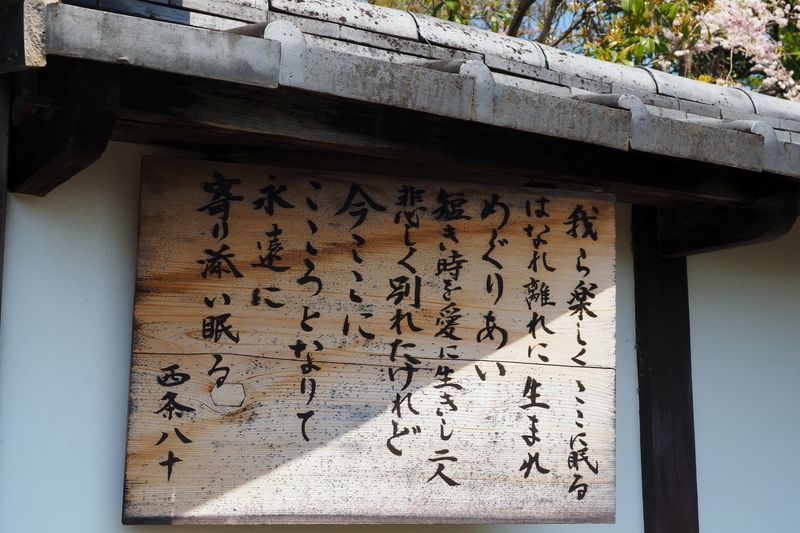 我ら楽しくここに眠る
はなれ離れに生まれ
めぐりあい
短き時を愛に生きし二人
悲しく別れたけれど
今ここに
こころとなりて
永遠に
寄り添い眠る
西条八十